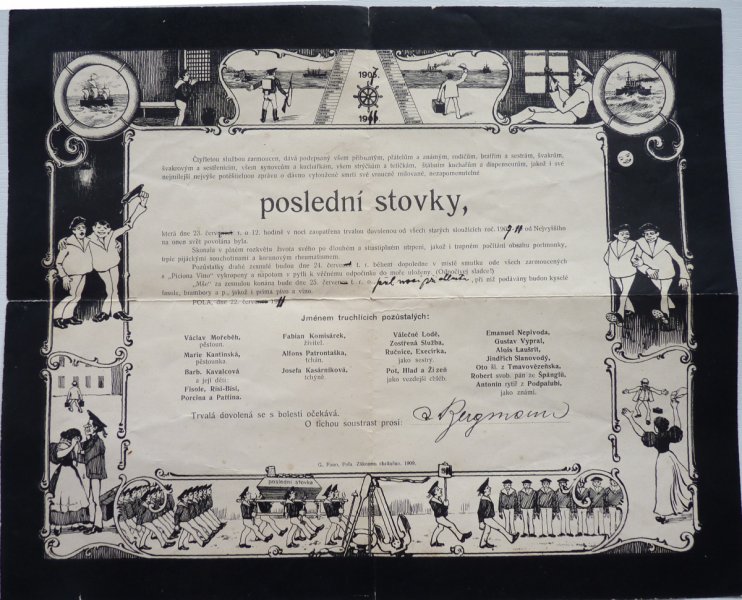 1905.
Čtyřletou službou zarmoucen, dává podepsaný všem příbuzným, přátelům a známým, rodičům, bratřím a sestrám, švakrům,
švakrovým a sestřenicím, všem synovcům a kuchařkám, všem strýčkům a tetičkám,
nejmilejší nejvýše potěšitelnou zprávu o dávno vytoužené smrti své vroucně milované, nezapomenutelné
poslední stovky,
která dne 23. t. r. o 12. hodině v noci zaopatřena trvalou dovolenou od všech starých sloužících roč. od Nejvyššího
na onen svět povolána byla.
Skonala v plném rozkvětu života svého po dlouhém a strastiplném utrpení, jakož i trapném počítání obsahu portmonky,
topic pijáckými souchotinami a korunovým rheumatismem.
Pozůstatky drahé zesnulé budou dne 24. t. r. během dopoledne v místě smutku ode všech zarmoucených
s „Piciona Vina“ vykropeny a nápotom v pytli k věčnému odpočinku do moře uloženy. (Odpočívej sladce!)
„Mše“ za zesnulou konána bude dne 25. t. r. při níž podávány budou kyselé
fasole, brambory a p., jakož i prima pivo a víno.
POLA, dne 22.
Jménem truchlících pozůstalých:
Václav Mořeběh,
pěstoun.
Marie Kantinská,
pěstounka.
Barb. Kavalcová
a její děti:
Fisole, Risi-Bisi,
Porcina a Pattina.
Fabian Komisárek,
živitel.
Alfons Patrontaška,
tchán.
Josefa Kasárníková,
tchýně.
Válečné Lodě,
Zostřená Služba,
Ručnice, Execirka,
jako sestry.
Pot, Hlad a Žízeň
jako vezdejší chléb.
Emanuel Nepivoda,
Gustav Vypral,
Alois Laušrit,
Jindřich Slanovodý,
Oto šl. z Tmavovězenska,
Robert svob. pán ze Španglí,
Antonín rytíř z Podpalubí,
jako známí.
Trvalá dovolená se s bolestí očekává.
O tichou soustrast prosí:
Bergmann
G. Fano, Pola. Zákonem chráněno. 1909.
poslední stovka